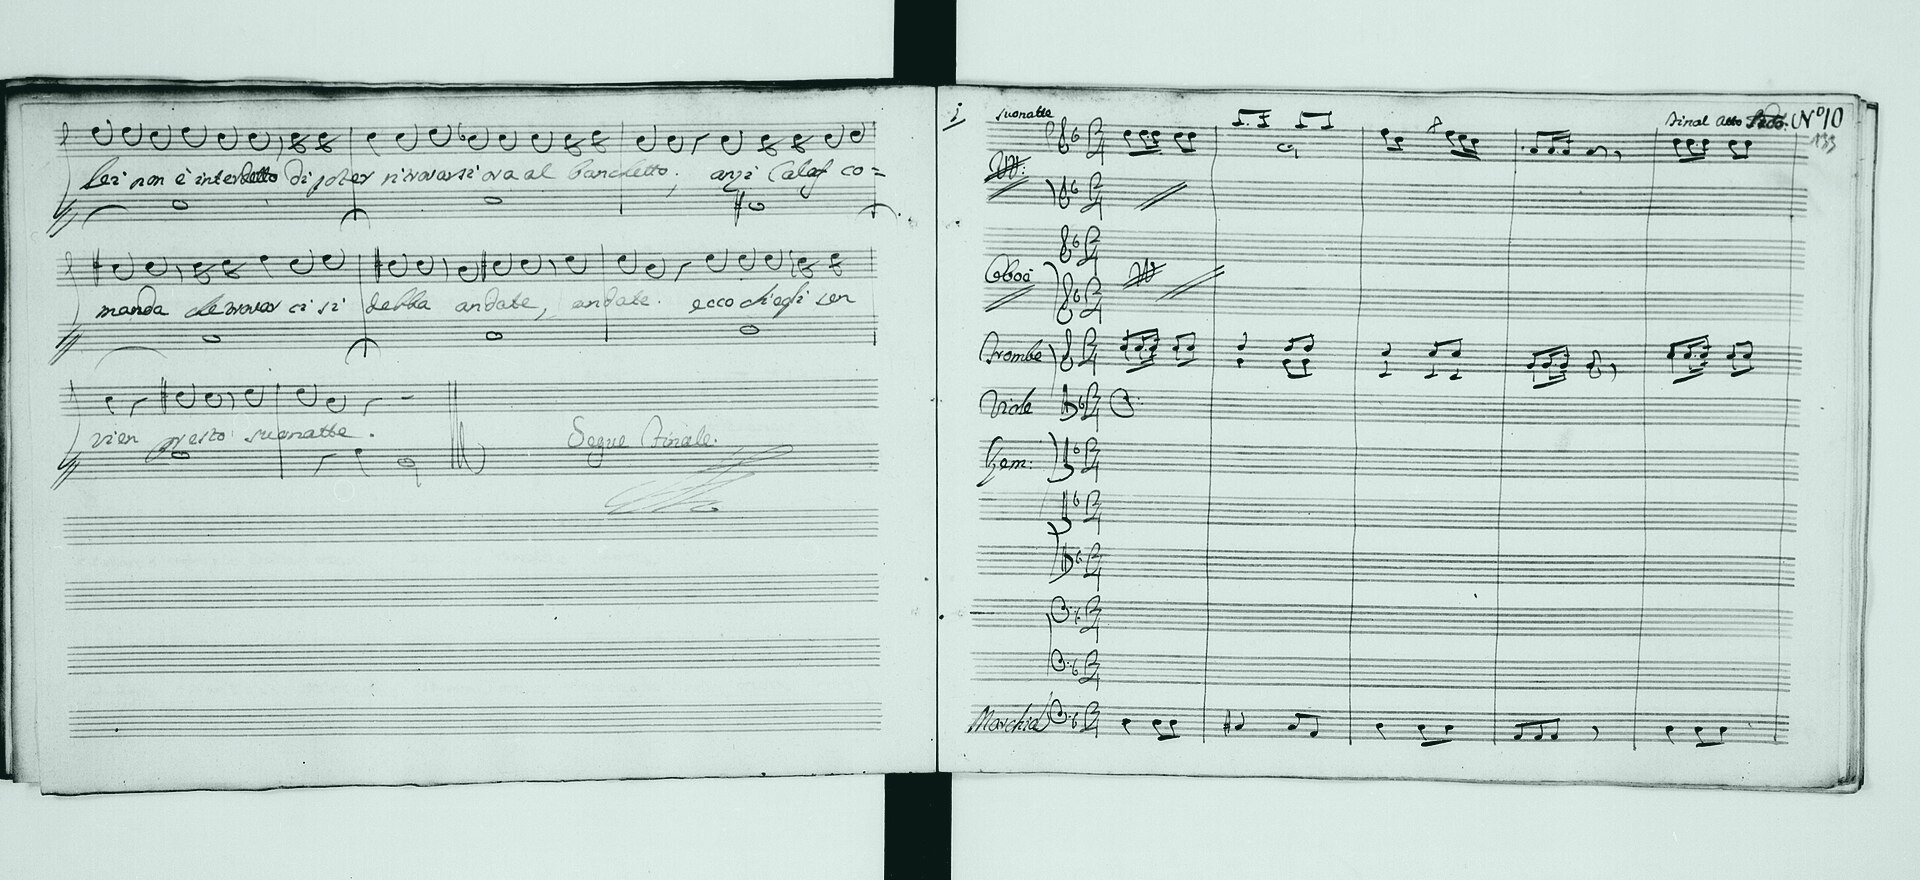 lei non è interdetto di poter ritrovarsi ora al banchetto; anzi Calaf co=
manda che trovar ci si debba andate, andate. ecco ch'egli sen
vien presto suonatte.
Segue Finale.
suonatte
Final Atto N.º 10
133
VV:
Oboi
Trombe
Viole
Gem:
Marchia